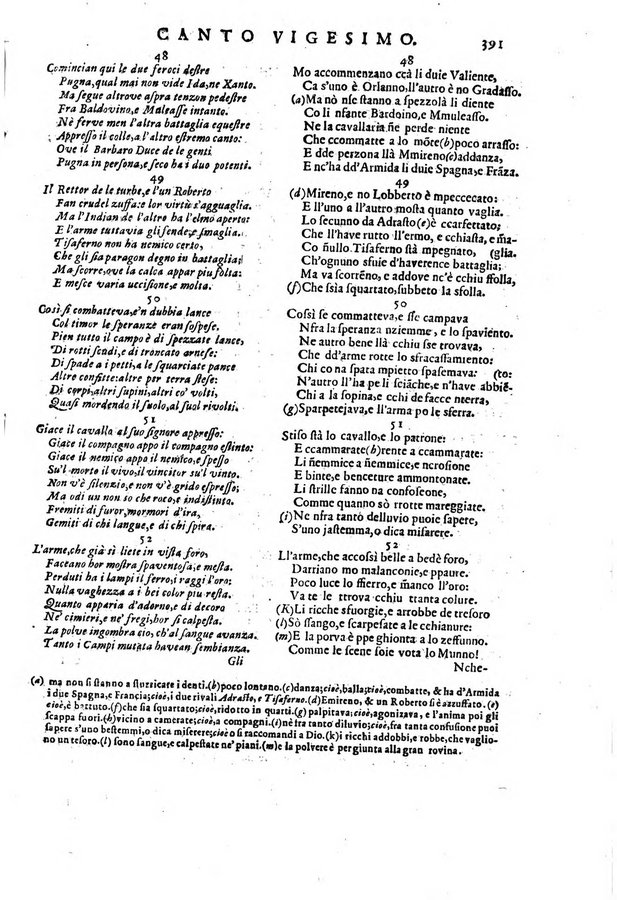 CANTO VIGESIMO.
391
48
Comincian qui le due feroci deſtre
Pugna, qual mai non vide Ida, ne Xanto.
Ma ſegue altrove aſpra tenzon pedeſtre
Fra Baldovino, e Maleaſſe intanto.
Nè ferve men l'altra battaglia equeſtre
Appreſſo il colle, a l'altro eſtremo canto:
Ove il Barbaro Duce de le genti
Pugna in perſona, e ſeco ha i duo potenti.
49
Il Rettor de le turbe, e l'un Roberto
Fan crudel zuffa: e lor virtù s'agguaglia.
Ma l'Indian de l'altro ha l'elmo aperto:
E l'arme tuttavia gli fende, e ſmaglia.
Tiſaferno non ha nemico certo,
Che gli ſia paragon degno in battaglia:
Ma ſcorre, ove la calca appar più folta:
E meſce varia ucciſione, e molta.
50
Così ſi combatteva, e'n dubbia lance
Col timor le ſperanze eran ſoſpeſe.
Pien tutto il campo è di ſpezzate lance,
Di rotti ſcudi, e di troncato arneſe:
Di ſpade a i petti, a le ſquarciate pance
Altre confitte: altre per terra ſteſe:
Di corpi, altri ſupini, altri co' volti,
Quaſi mordendo il ſuolo, al ſuol rivolti.
51
Giace il cavallo al ſuo ſignore appreſſo:
Giace il compagno appo il compagno eſtinto:
Giace il nemico appo il nemico, e ſpeſſo
Su'l morto il vivo, il vincitor ſu'l vinto.
Non v'è ſilenzio, e non v'è grido eſpreſſo;
Ma odi un non ſo che roco, e indiſtinto.
Fremiti di furor, mormori d'ira,
Gemiti di chi langue, e di chi ſpira.
52
L'arme, che già sì liete in viſta foro,
Faceano hor moſtra ſpaventoſa, e meſta.
Perduti ha i lampi il ferro, i raggi l'oro:
Nulla vaghezza a i bei color più reſta.
Quanto apparia d'adorno, e di decoro
Ne' cimieri, e ne' fregi, hor ſi calpeſta.
La polve ingombra ciò, ch'al ſangue avanza.
Tanto i Campi mutata havean ſembianza.
Gli
48
Mo accommenzano ccà li duie Valiente,
Ca s'uno è Orlanno, ll'autro è no Gradaſſo.
(a) Ma nò nſe ſtanno a ſpezzolà li diente
Co li nfante Bardoino, e Mmuleaſſo.
Ne la cavallaria nſe perde niente
Che ccommatte a lo mõte (b) poco arraſſo:
E dde perzona llà Mmireno (c) addanza,
E nc'ha dd'Armida li duie Spagna, e Frãza.
49
(d) Mireno, e no Lobberto è mpecccecato:
E ll'uno a ll'autro moſta quanto vaglia.
Lo ſecunno da Adraſto (e) è ccarfettato;
Che ll'have rutto ll'ermo, e cchiaſta, e ma-
Co nullo. Tiſaferno ſtà mpegnato, (glia.
Ch'ognuno sfuie d'haverence battaglia;
Ma va ſcorrẽno, e addove nc'è cchiu ffolla,
(f) Che ſsia ſquartato, ſubbeto la sfolla.
50
Coſsì ſe commatteva, e ſſe campava
Nfra la ſperanza nziemme, e lo ſpaviento.
Ne autro bene llà cchiu ſſe trovava,
Che dd'arme rotte lo sfracaſſamiento:
Chi co na ſpata mpietto ſpaſemava: (to:
N'autro ll'ha pe li ſciãche, e n'have abbiẽ-
Chi a la ſopina, e cchi de facce nterra,
(g) Sparpetejava, e ll'arma po le sferra.
51
Stiſo ſtà lo cavallo, e lo patrone:
E ccammarate (h) rente a ccammarate:
Li ñemmice a ñemmice, e ncroſione
E binte, e benceture ammontonate.
Li ſtrille fanno na confoſeone,
Comme quanno sò rrotte mareggiate.
(i) Ne nfra tanto delluvio puoie ſapere,
S'uno jaſtemma, o dica miſarere.
52
Ll'arme, che accoſsì belle a bedè foro,
Darriano mo malanconie, e ppaure.
Poco luce lo ffierro, e mãco ll'oro:
Va te le ttrova cchiu tranta colure.
(K) Li ricche sfuorgie, e arrobbe de treſoro
(l) Sò ſſango, e ſcarpeſate a le cchianure:
(m) E la porva è ppe ghionta a lo zeffunno.
Comme le ſcene ſoie vota lo Munno!
Nche-
(a) ma non ſi ſtanno a ſturzicare i denti. (b) poco lontano. (c) danza; cioè, balla; cioè, combatte, & ha d'Armida
i due Spagna, e Francia; cioè, i due rivali Adraſto, e Tiſaferno. (d) Emireno, & un Roberto ſi è azzuffato. (e)
cioè, è battuto. (f) che ſia ſquartato; cioè, ridotto in quarti. (g) palpitava; cioè, agonizava, e l'anima poi gli
ſcappa fuori. (h) vicino a camerate; cioè, a compagni. (i) nè fra tanto diluvio; cioè, fra tanta confuſione puoi
ſapere s'uno beſtemmi, o dica miſerere; cioè o ſi raccomandi a Dio. (k) i ricchi addobbi, e robbe, che vaglio-
no un teſoro. (l) ſono ſangue, e calpeſtate ne' piani. (m) e la polvere è pergiunta alla gran rovina.